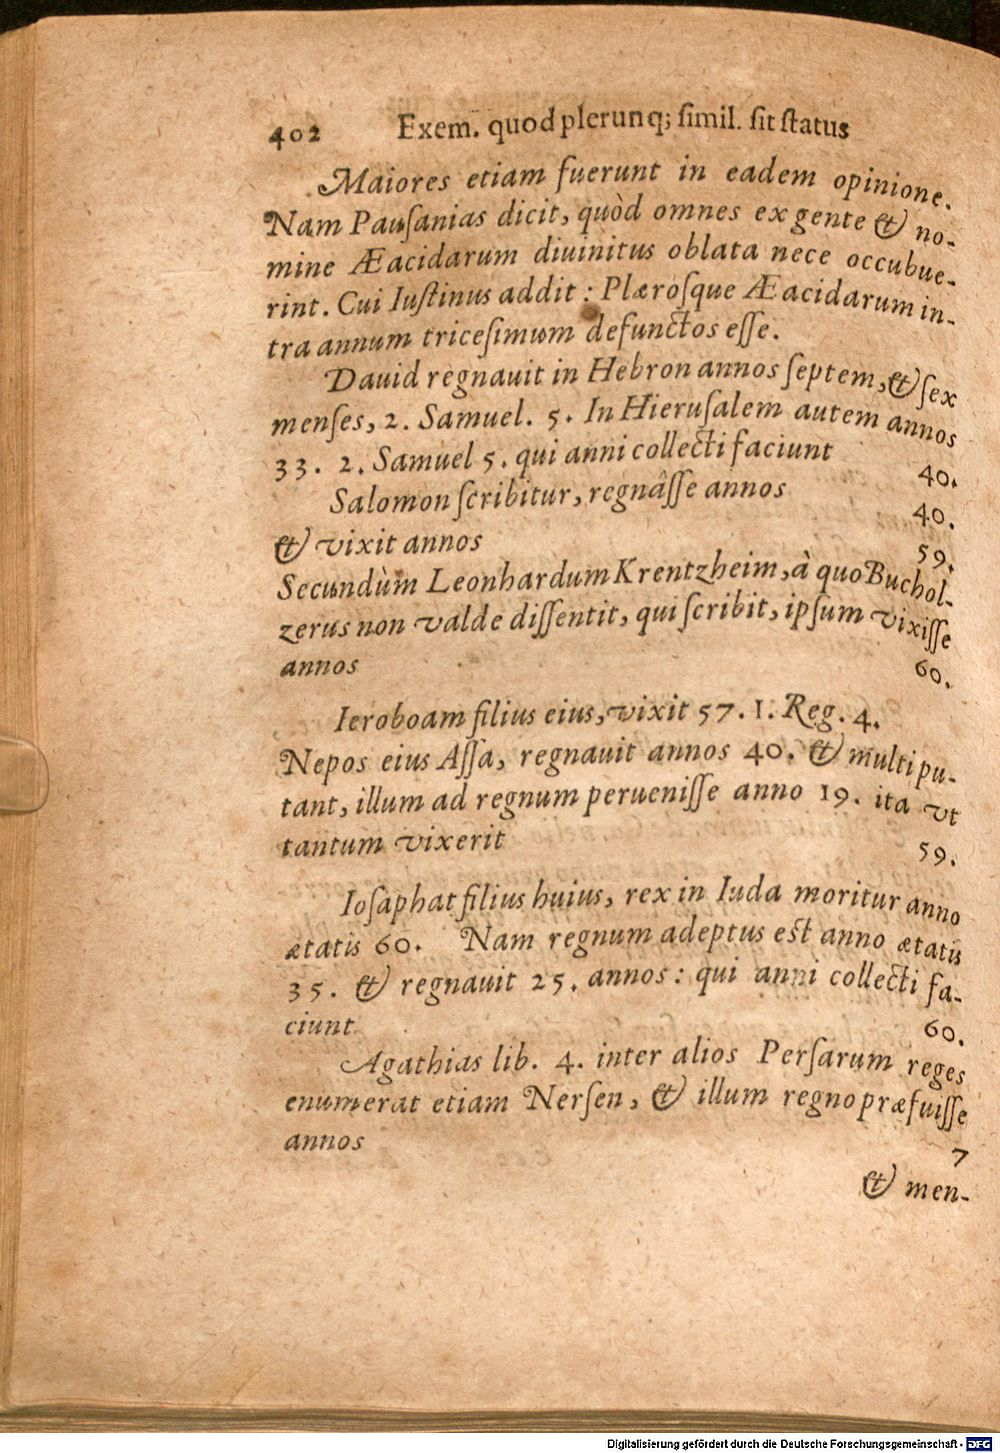 402 Exem. quod plerunq; simil. sit status
Maiores etiam fuerunt in eadem opinione.
Nam Pausanias dicit, quòd omnes ex gente & no-
mine Æacidarum diuinitus oblata nece occubue-
rint. Cui Iustinus addit : Plærosque Æacidarum in-
tra annum tricesimum defunctos esse.
Dauid regnauit in Hebron annos septem, & sex
menses, 2. Samuel. 5. In Hierusalem autem annos
33. 2. Samuel 5. qui anni collecti faciunt 40.
Salomon scribitur, regnâsse annos 40.
& vixit annos 59.
Secundùm Leonhardum Krentzheim, à quo Buchol-
zerus non valde dissentit, qui scribit, ipsum vixisse
annos 60.
Ieroboam filius eius, vixit 57. 1. Reg. 4.
Nepos eius Assa, regnauit annos 40. & multi pu-
tant, illum ad regnum peruenisse anno 19. ita vt
tantum vixerit 59.
Iosaphat filius huius, rex in Iuda moritur anno
ætatis 60. Nam regnum adeptus est anno ætatis
35. & regnauit 25. annos : qui anni collecti fa-
ciunt 60.
Agathias lib. 4. inter alios Persarum reges
enumerat etiam Nersen, & illum regno præfuisse
annos 7
& men-
Digitalisierung gefördert durch die Deutsche Forschungsgemeinschaft - DFG